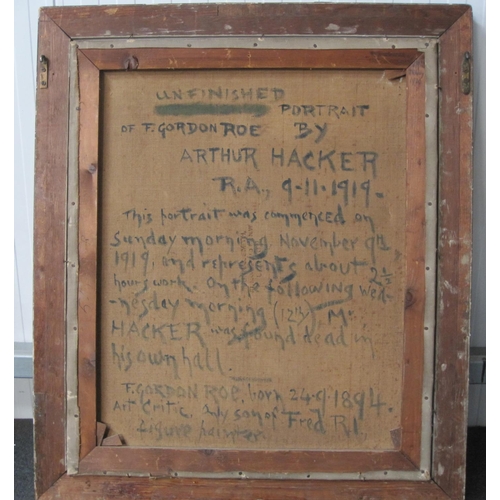 UNFINISHED
PORTRAIT
OF F. GORDON ROE BY
ARTHUR HACKER
R.A., 9-11-1919-
This portrait was commenced on
Sunday morning November 9th,
1919, and represents about 2½
hours work. On the following Wed-
-nesday morning (12th) Mr.
HACKER was found dead in
his own hall.
F. GORDON ROE, born 24.9.1894.
Art Critic. Only son of Fred R.I.,
figure painter.